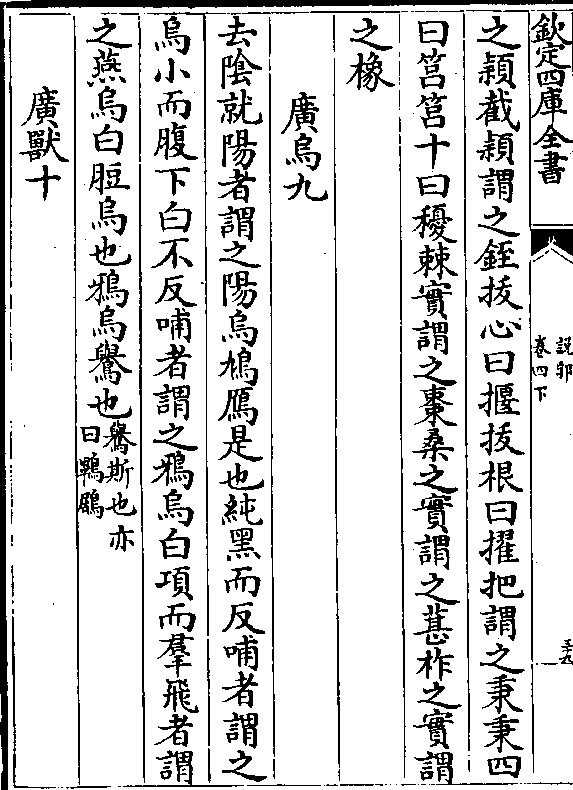 欽定四庫全書
說郛
卷四下
之穎截穎謂之銍拔心曰揠拔根曰擢把謂之秉秉四
曰筥筥十曰稯棘實謂之棗桑之實謂之葚柞之實謂
之橡
廣烏九
去陰就陽者謂之陽烏鳩鴈是也純黑而反哺者謂之
烏小而腹下白不反哺者謂之鴉烏白項而羣飛者謂
之燕烏白脰烏也鴉烏鸒也鸒斯也亦
曰鵯鶋
廣獸十